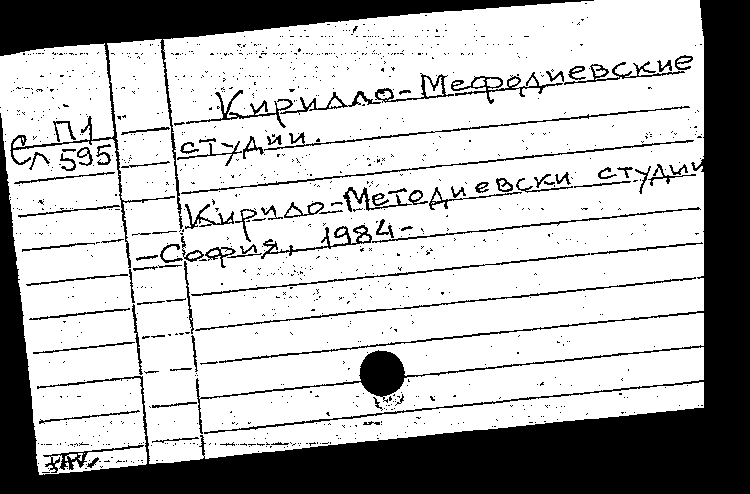 Кирилло-Мефодиевские
Сл П1
595
студии.
Кирило-Методиевски студии
-София, 1984-